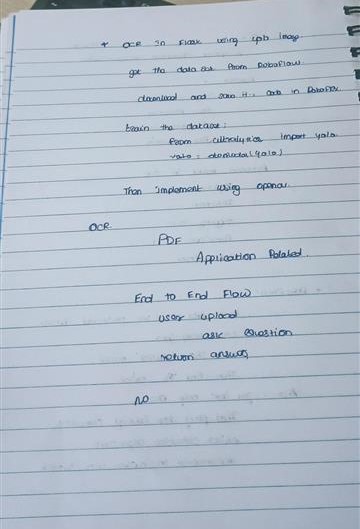 * OCR in Flask using yolo image.
get the data set from Roboflow
download and save it code in Roboflow
train the dataset:
from ultralytics import yolo
yolo = download(yolo)
Then implement using opencv.
OCR.
PDF
Application Related.
End to End Flow
user upload
ask Question
return answer
NO